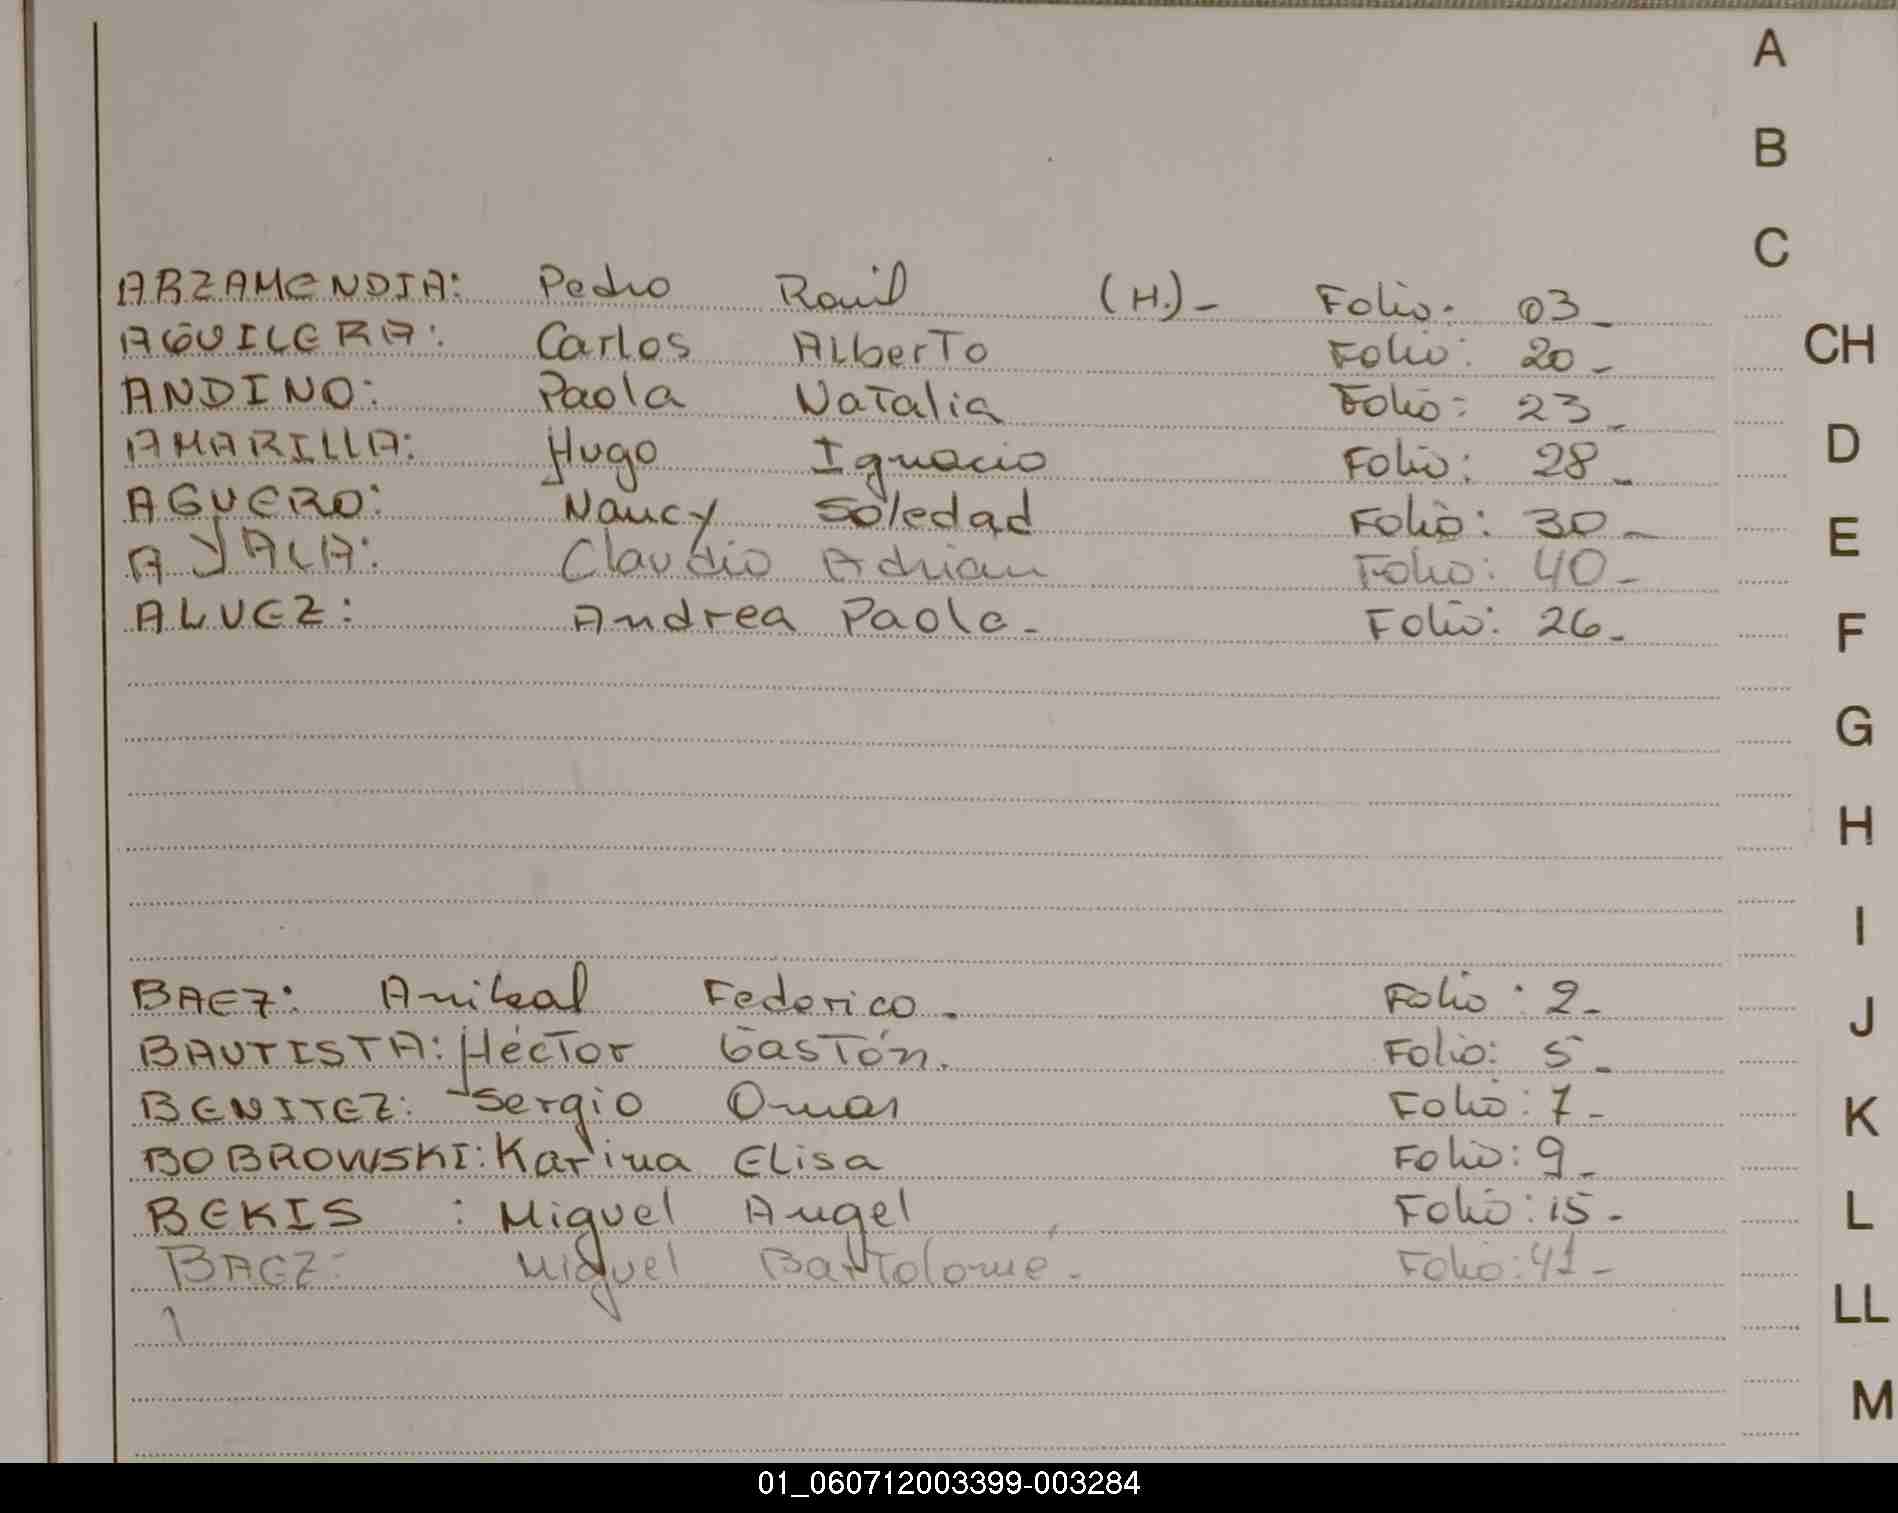 A
B
C
ARZAMENDIA: Pedro Raúl (H.)- Folio: 03-
AGUILERA: Carlos Alberto Folio: 20-
CH
ANDINO: Paola Natalia Folio: 23-
AMARILLA: Hugo Ignacio Folio: 28-
D
AGUERO: Nancy Soledad Folio: 30-
E
AYALA: Claudio Adrian Folio: 40-
ALVEZ: Andrea Paola- Folio: 26-
F
G
H
I
BAEZ: Anibal Federico- Folio: 2-
J
BAUTISTA: Héctor Gastón. Folio: 5-
BENITEZ: Sergio Omar Folio: 7-
K
BOBROWSKI: Karina Elisa Folio: 9-
BEKIS : Miguel Angel Folio: 15-
L
BAEZ: Miguel Bartolomé- Folio: 41-
LL
M
01_060712003399-003284